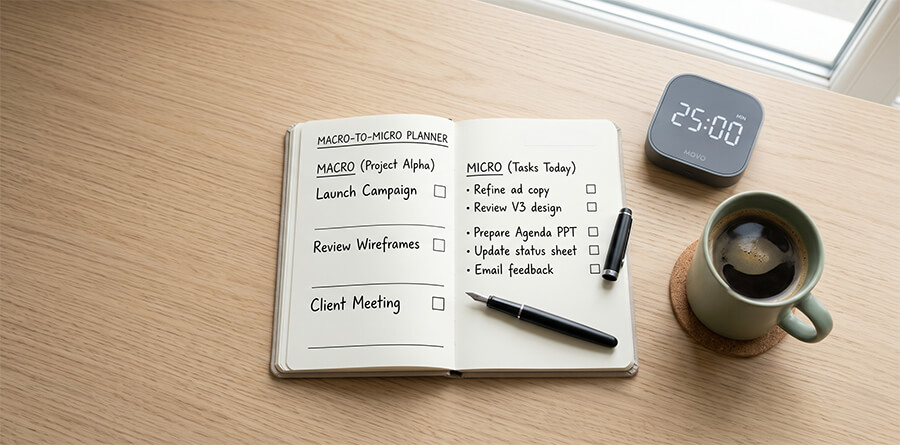 MACRO-TO-MICRO PLANNER
MACRO (Project Alpha)
Launch Campaign
Review Wireframes
Client Meeting
MICRO (Tasks Today)
• Refine ad copy
• Review V3 design
• Prepare Agenda PPT
• Update status sheet
• Email feedback
25:00 MIN
MOVO